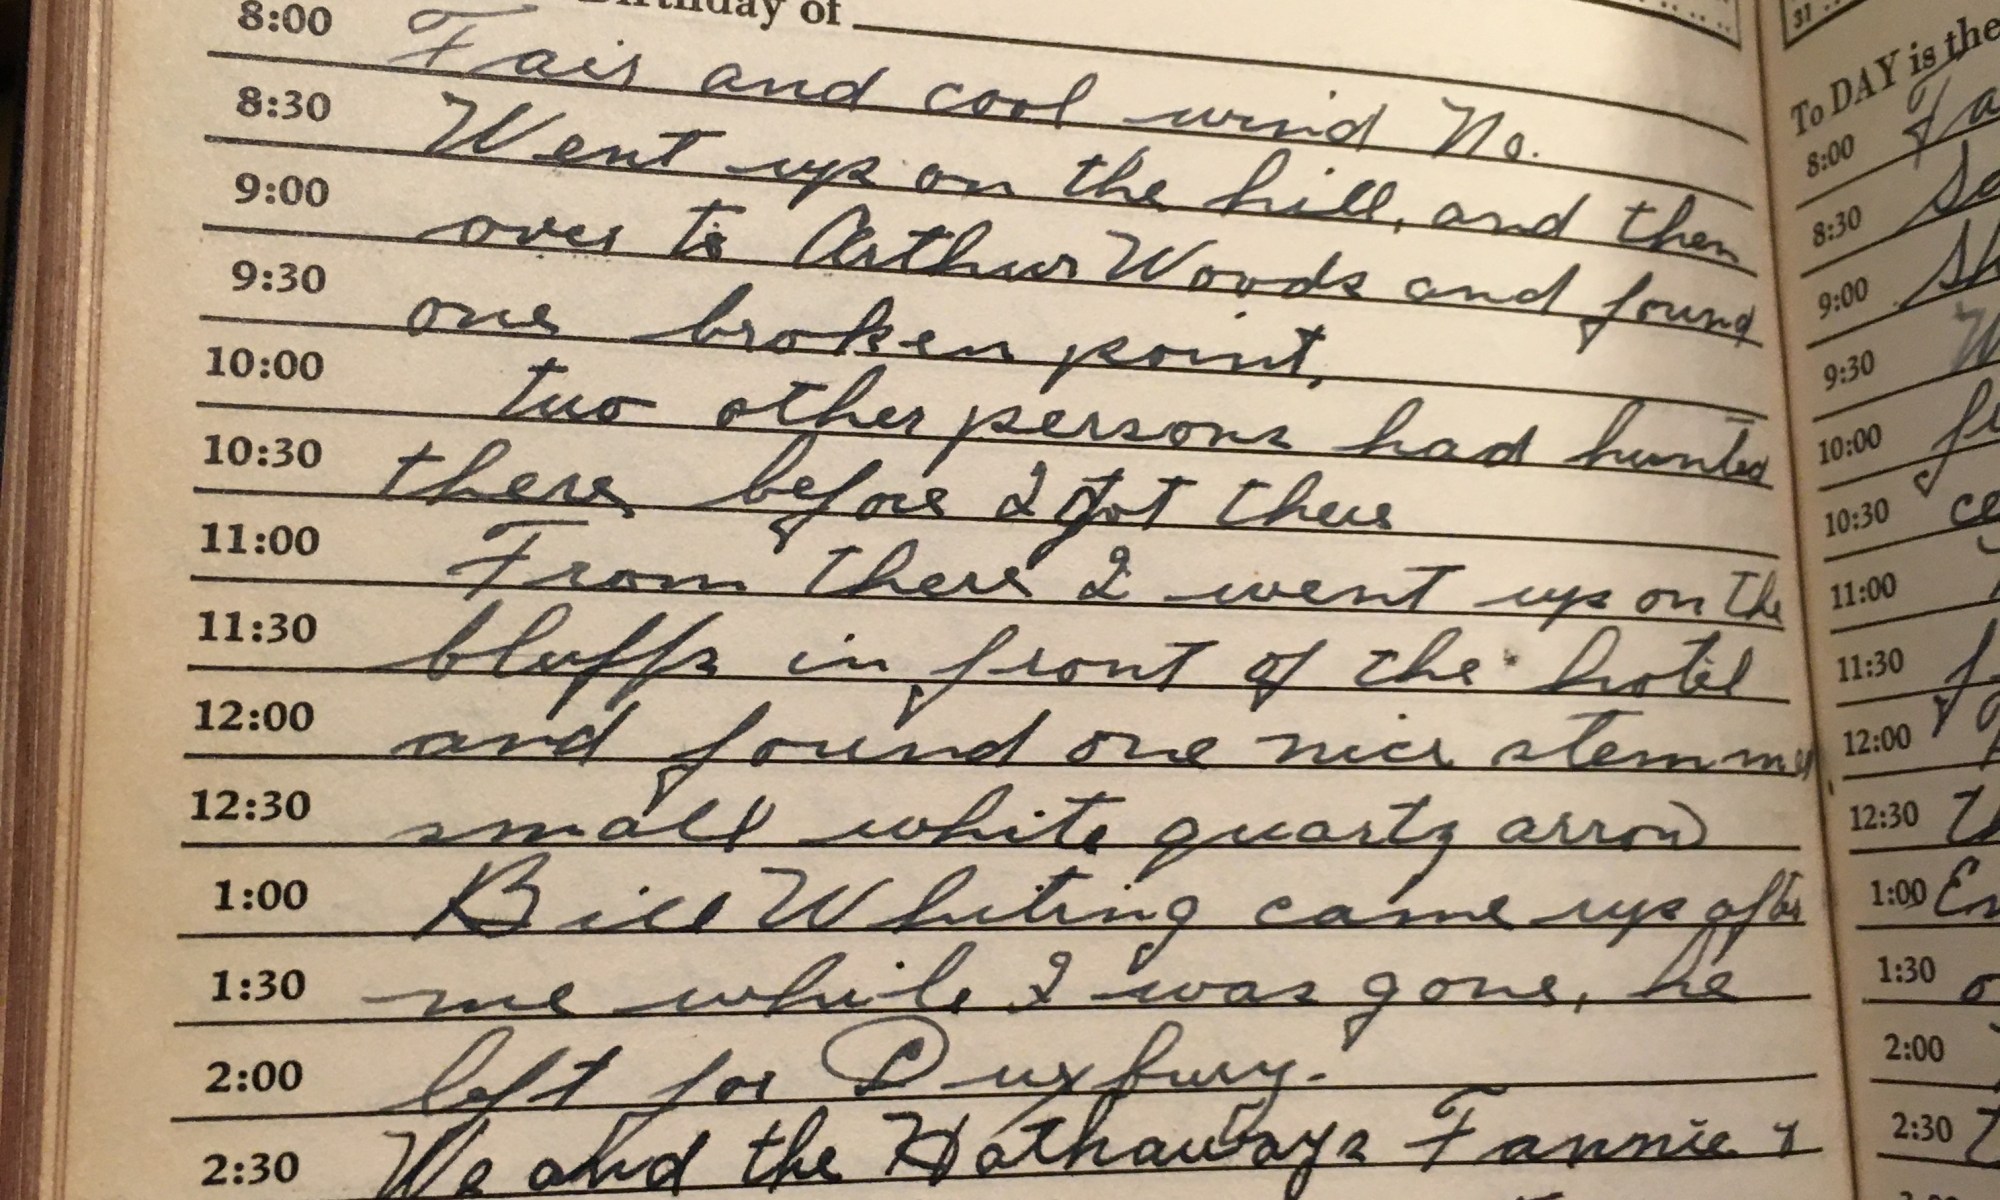 Birthday of
8:00 Fair and cool wind No.
8:30 Went up on the hill, and then
9:00 over to Arthur Woods and found
9:30 one broken point,
10:00 two other persons had hunted
10:30 there before I got there
11:00 From there I went up on the
11:30 bluffs in front of the hotel
12:00 and found one nice stemmed
12:30 small white quartz arrow
1:00 Bill Whiting came up after
1:30 me while I was gone, he
2:00 left for Duxbury.
2:30 We and the Hathaways Fannie &
31
To DAY is the
8:00
8:30
9:00
9:30
10:00
10:30
11:00
11:30
12:00
12:30
1:00
1:30
2:00
2:30